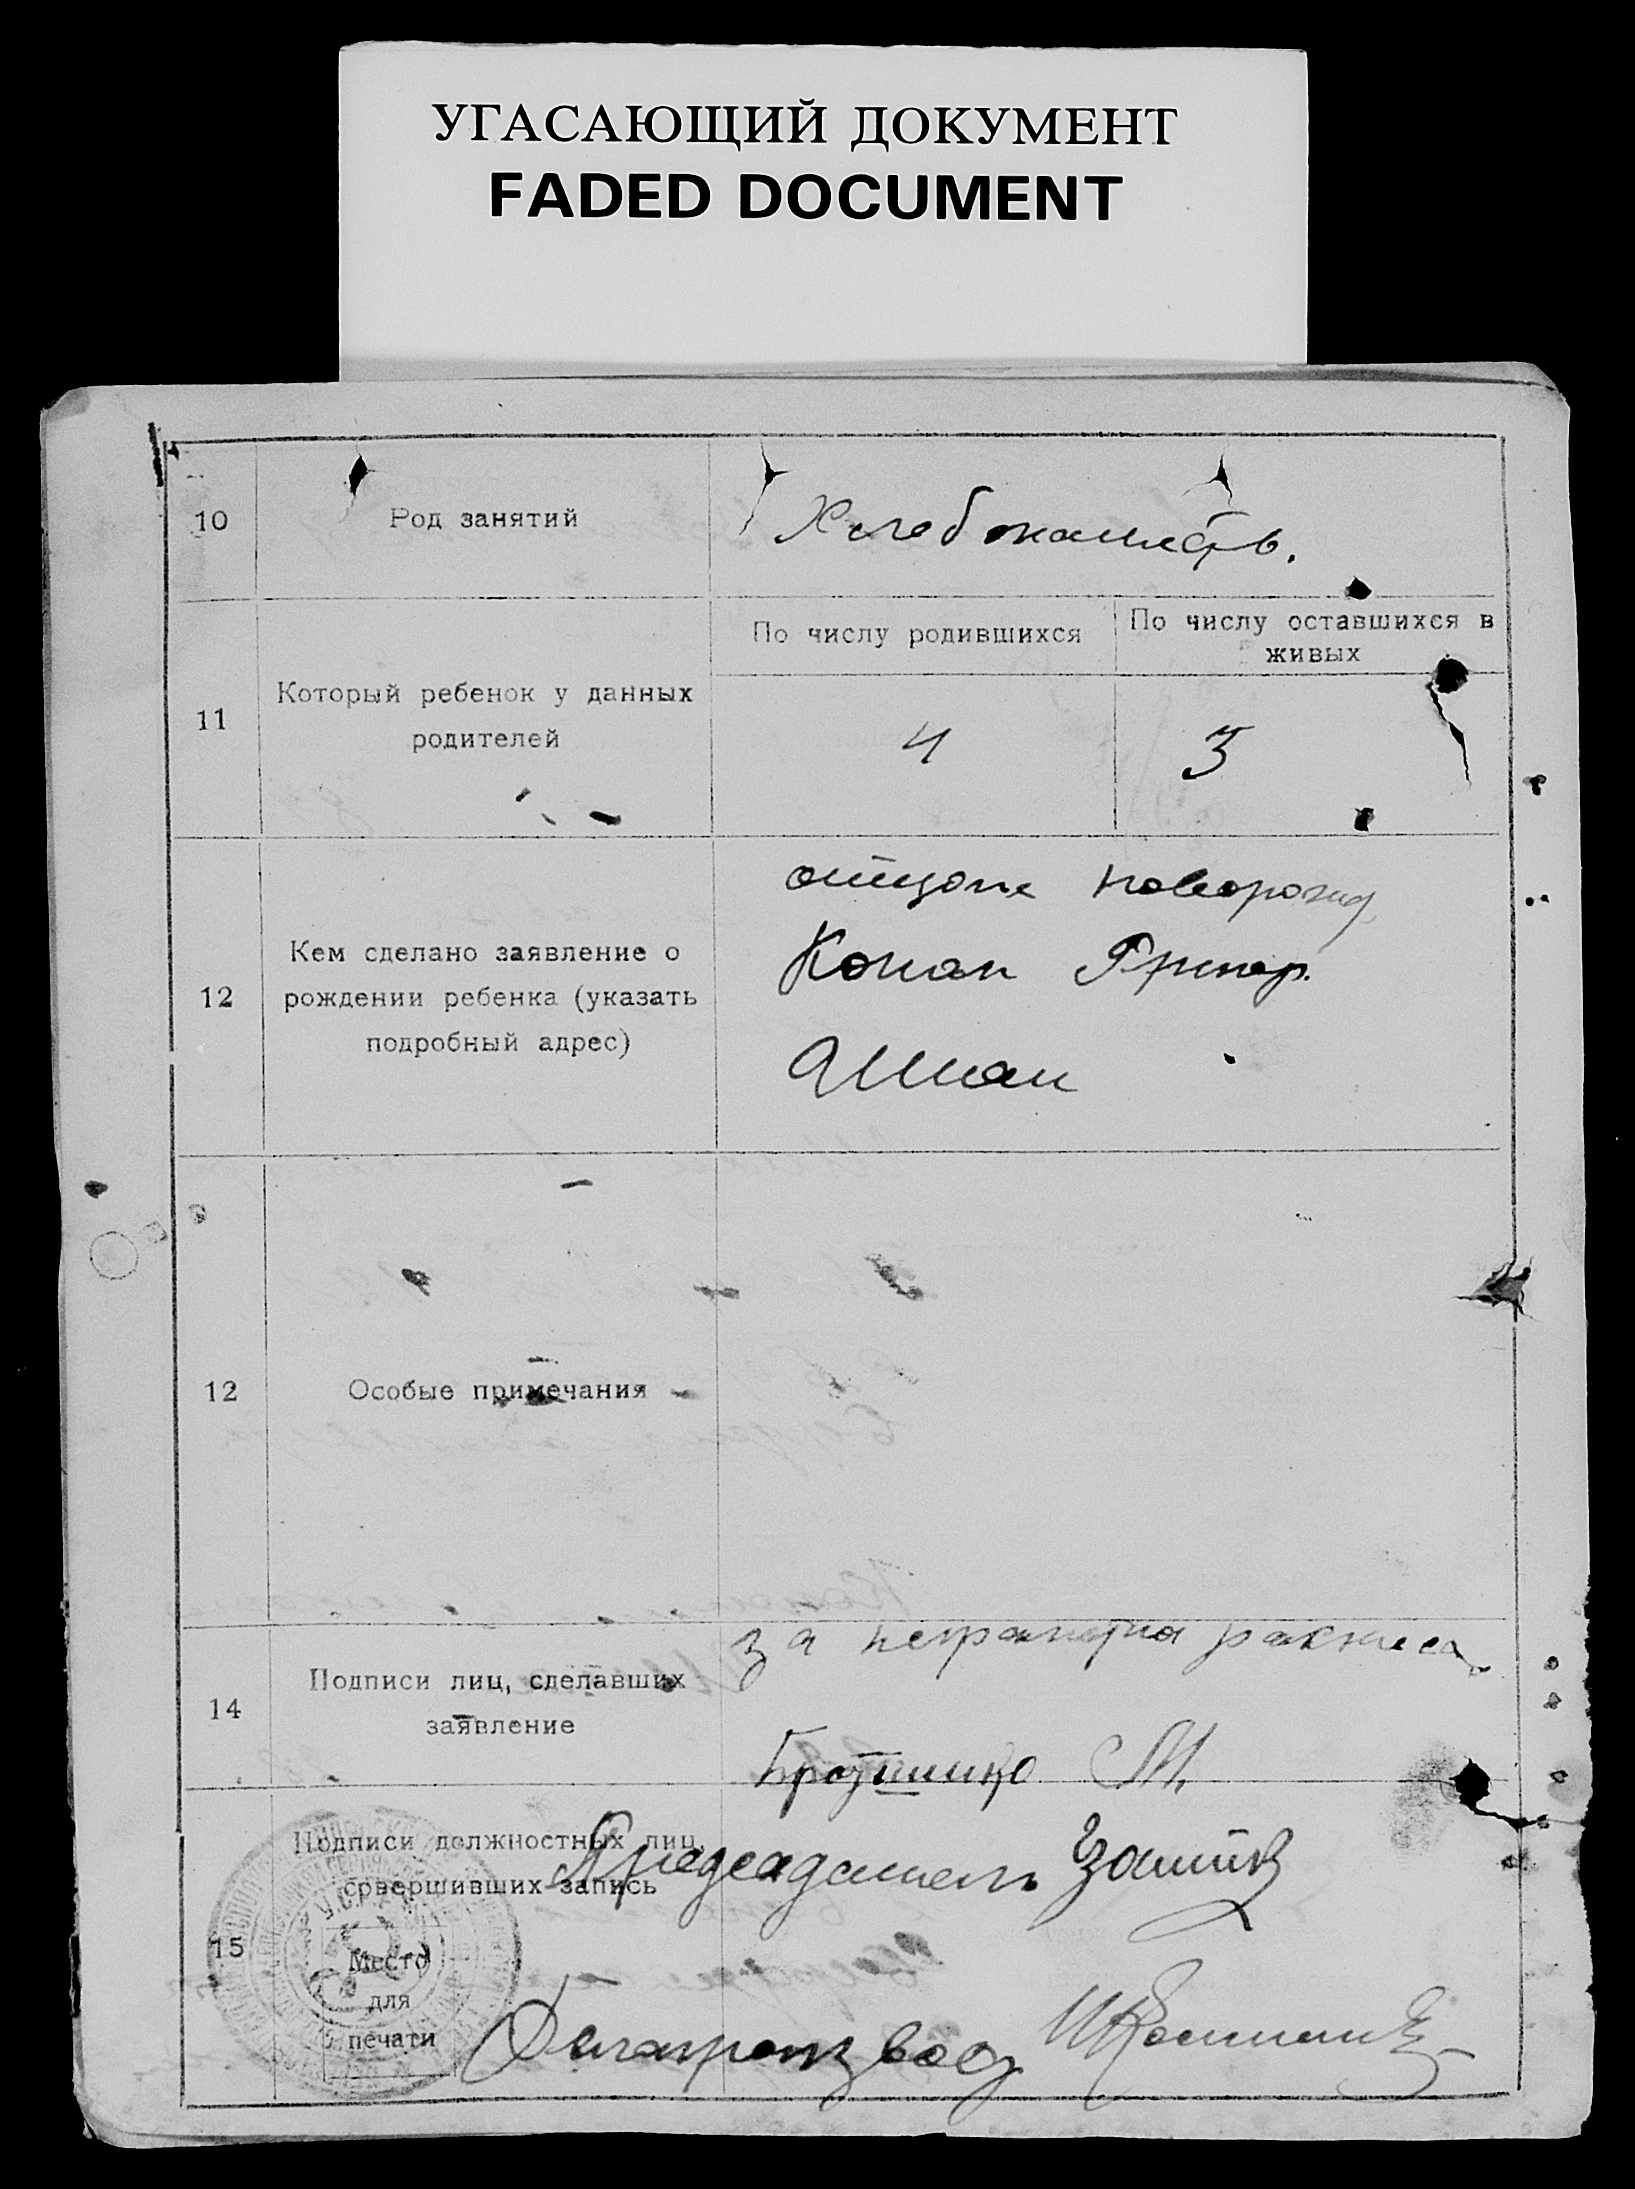 УГАСАЮЩИЙ ДОКУМЕНТ
FADED DOCUMENT
10
Род занятий
11
Который ребенок у данных
родителей
По числу родившихся
По числу оставшихся в
живых
4
3
12
Кем сделано заявление о
рождении ребенка (указать
подробный адрес)
отцом новорожд
Конан Григор.
12
Особые примечания
14
Подписи лиц, сделавших
заявление
за неграмотна
М.
15
Подписи должностных лиц,
совершивших запись
Председатель
У.С.Р.Р.
Место
для
печати